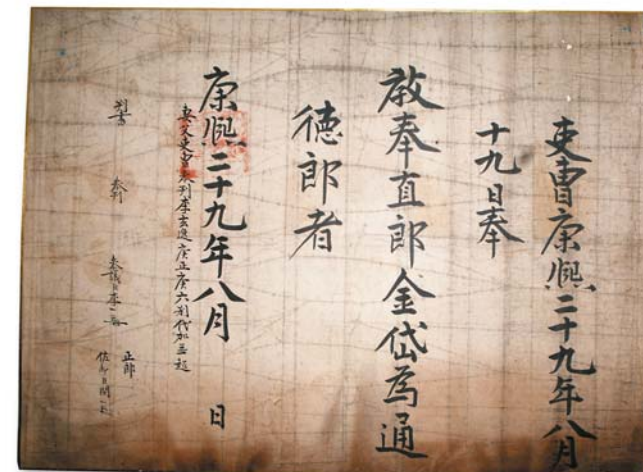 吏曹康熙二十九年八月
十九日奉
敎奉直郎金岱為通
德郎者
康熙二十九年八月 日
判書
參判
參議臣李
正郎
佐郎臣閔